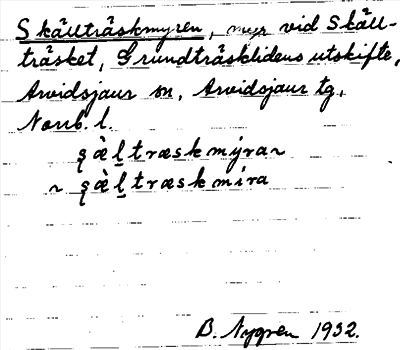 Skällträskmyren, myr vid Skäll-
träsket, Grundträsklidens utskifte,
Arvidsjaur sn, Arvidsjaur tg,
Norrb. l.
ʂæ̀l̲træskmýran
~ ʂæ̀l̲træskmíra
B. Nygren 1932.